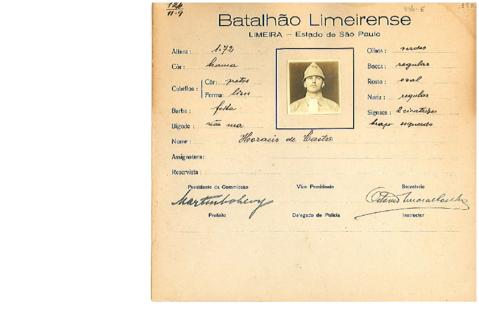 Batalhão Limeirense
LIMEIRA — Estado de São Paulo
Altura: 1.72
Olhos:
Côr:
Bocca: regular
Cabellos: Côr: pretos
Rosto: oval
Forma: liso
Nariz: regular
Barba: feita
Signaes: 2 cicatrizes
Bigode: não usa
braço esquerdo
Nome: Horacio de
Assignatura:
Reservista:
Presidente da Commissão Vice Presidente Secretario
Prefeito Delegado de Policia Instructor